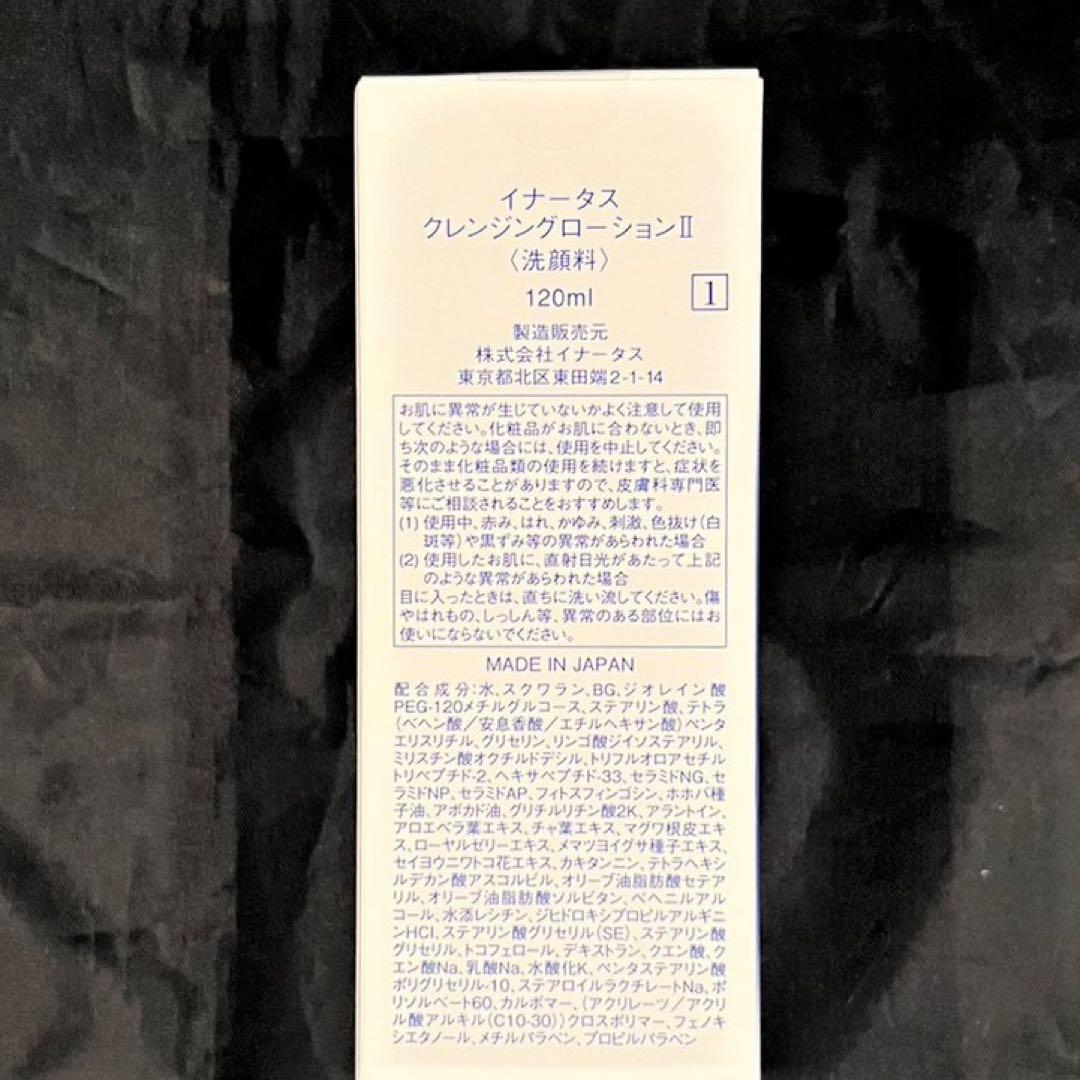 イナータス
クレンジングローションⅡ
〈洗顔料〉
120ml
1
製造販売元
株式会社イナータス
東京都北区東田端2-1-14
お肌に異常が生じていないかよく注意して使用
してください。化粧品がお肌に合わないとき、即
ち次のような場合には、使用を中止してください。
そのまま化粧品類の使用を続けますと、症状を
悪化させることがありますので、皮膚科専門医
等にご相談されることをおすすめします。
(1) 使用中、赤み、はれ、かゆみ、刺激、色抜け(白
斑等)や黒ずみ等の異常があらわれた場合
(2) 使用したお肌に、直射日光があたって上記
のような異常があらわれた場合
目に入ったときは、直ちに洗い流してください。傷
やはれもの、しっしん等、異常のある部位にはお
使いにならないでください。
MADE IN JAPAN
配合成分:水、スクワラン、BG、ジオレイン酸
PEG-120メチルグルコース、ステアリン酸、テトラ
(ベヘン酸/安息香酸/エチルヘキサン酸)ペンタ
エリスリチル、グリセリン、リンゴ酸ジイソステアリル、
ミリスチン酸オクチルドデシル、トリフルオロアセチル
トリペプチド-2、ヘキサペプチド-33、セラミドNG、セ
ラミドNP、セラミドAP、フィトスフィンゴシン、ホホバ種
子油、アボカド油、グリチルリチン酸2K、アラントイン、
アロエベラ葉エキス、チャ葉エキス、マグワ根皮エキ
ス、ローヤルゼリーエキス、メマツヨイグサ種子エキス、
セイヨウニワトコ花エキス、カキタンニン、テトラヘキシ
ルデカン酸アスコルビル、オリーブ油脂肪酸セテア
リル、オリーブ油脂肪酸ソルビタン、ベヘニルアル
コール、水添レシチン、ジヒドロキシプロピルアルギニ
ンHCl、ステアリン酸グリセリル(SE)、ステアリン酸
グリセリル、トコフェロール、デキストラン、クエン酸、ク
エン酸Na、乳酸Na、水酸化K、ペンタステアリン酸
ポリグリセリル-10、ステアロイルラクチレートNa、ポ
リソルベート60、カルボマー、(アクリレーツ/アクリ
ル酸アルキル(C10-30))クロスポリマー、フェノキ
シエタノール、メチルパラベン、プロピルパラベン